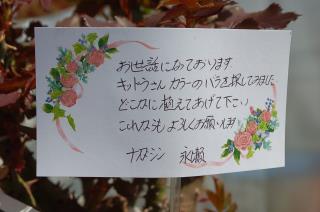 お世話になっております
キットうさん カラーのバラを探してみました
どこかに植えてあげて下さい
これからも よろしくお願いします
ナカシン 永瀬